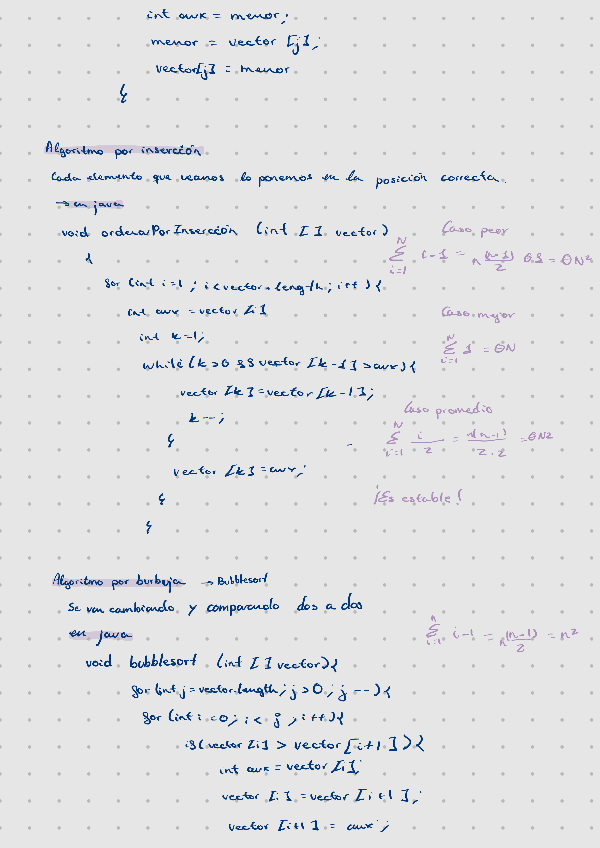 int aux = menor;
menor = vector [j];
vector[j] = menor
}
Algoritmo por inserción
Cada elemento que veamos lo ponemos en la posición correcta.
→ en java
void ordenarPorInserción (int [] vector)
{
for (int i=1 ; i<vector.length; i++) {
int aux = vector [i]
int k=1;
while (k>0 && vector [k-1] >aux){
vector [k]=vector [k-1];
k--;
}
vector [k]=aux;
}
}
Caso peor
N Σ i=1 i-1 = n(n-1)/2 θ.1 = θN²
Caso mejor
N Σ i=1 1 = θN
Caso promedio
N Σ i=1 i/2 = n(n-1)/2·2 = θN²
¡Es estable!
Algoritmo por burbuja → Bubblesort
Se van cambiando y comparando dos a dos
en java
void bubblesort (int [] vector){
for (int j=vector.length; j>0; j--){
for (int i=0; i< j ; i++){
if(vector [i] > vector [i+1]){
int aux = vector [i];
vector [i] = vector [i+1];
vector [i+1] = aux;
n Σ i=1 i-1 = n(n-1)/2 = n²